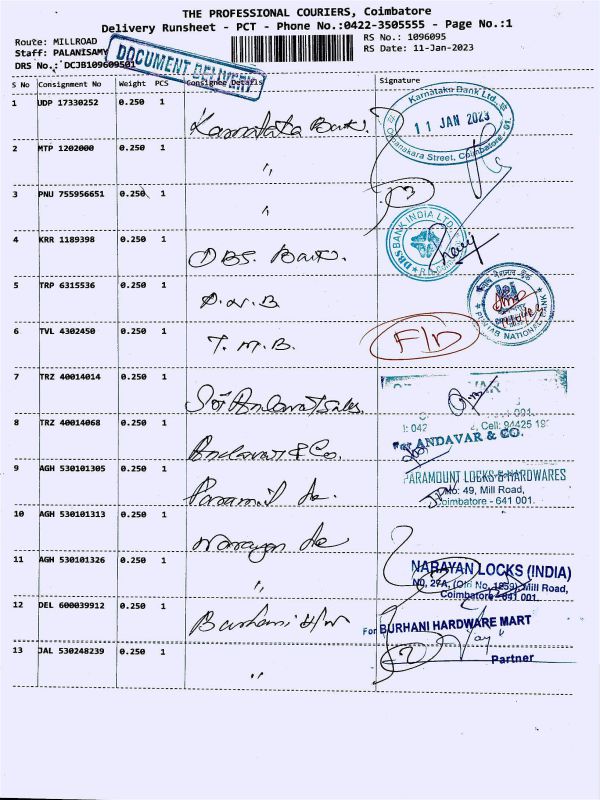 THE PROFESSIONAL COURIERS, Coimbatore
Delivery Runsheet - PCT - Phone No.:0422-3505555 - Page No.:1
Route: MILLROAD
RS No.: 1096095
Staff: PALANISAMY
RS Date: 11-Jan-2023
DRS No.: DCJB109609501
DOCUMENT DELIVERY
S No Consignment No Weight PCS Consignee Details Signature
1 UDP 17330252 0.250 1 Karnataka Bank.
Karnataka Bank Ltd.,
11 JAN 2023
Oppanakara Street, Coimbatore - 01.
2 MTP 1202000 0.250 1 "
3 PNU 755956651 0.250 1 "
4 KRR 1189398 0.250 1 DBS. Bank.
DBS BANK INDIA LTD
5 TRP 6315536 0.250 1 P.N.B
PUNJAB NATIONAL BANK
6 TVL 4302450 0.250 1 T.M.B. F/D
7 TRZ 40014014 0.250 1 Sri Andavar Sales
8 TRZ 40014068 0.250 1 Andavar & Co.
Cell: 94425
ANDAVAR & CO.
9 AGH 530101305 0.250 1
PARAMOUNT LOCKS & HARDWARES
No: 49, Mill Road,
Coimbatore - 641 001.
10 AGH 530101313 0.250 1 Narayan
11 AGH 530101326 0.250 1 "
NARAYAN LOCKS (INDIA)
NO, 27A, (Old No. 1859), Mill Road,
Coimbatore - 641 001.
12 DEL 600039912 0.250 1 Burhani H/W
For BURHANI HARDWARE MART
Partner
13 JAL 530248239 0.250 1 "